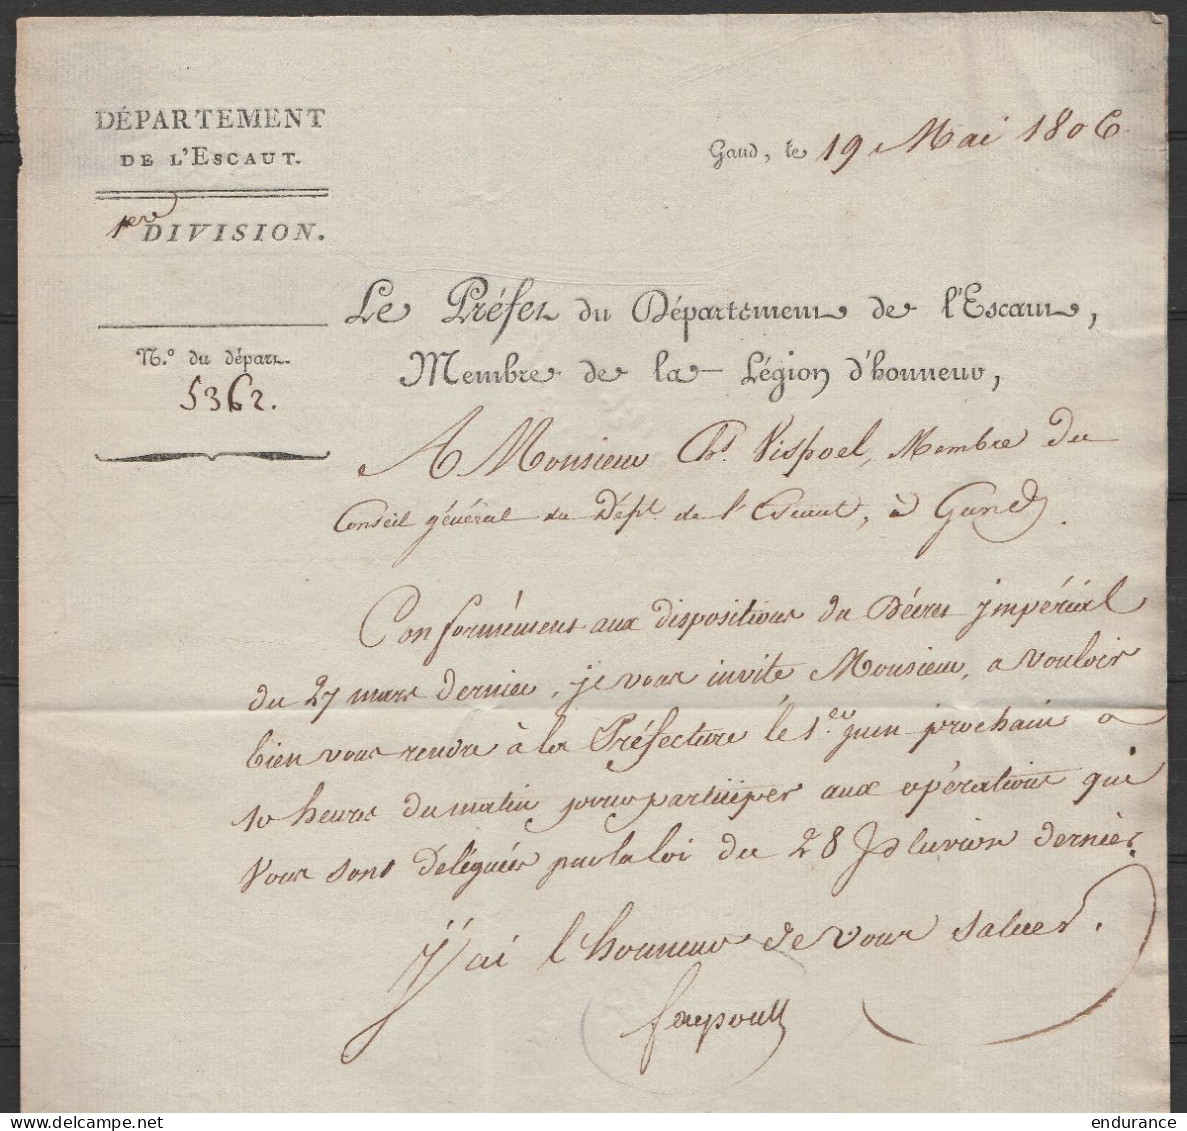 DÉPARTEMENT
DE L'ESCAUT.
1ere DIVISION.
N.º du départ.
5362.
Gand, le 19 Mai 1806
Le Préfet du Département de l'Escaut,
Membre de la Légion d'honneur,
A Monsieur Ch.s Vispoel, Membre du
Conseil général du Dépt. de l'Escaut, à Gand.
Conformément aux dispositions du Décret jmpérial
du 27 mars dernier, je vous invite Monsieur, a vouloir
bien vous rendre à la Préfecture le 1.er juin prochain a
10 heures du matin pour participer aux opérations qui
Vous sont déléguées par la loi du 28 Pluviôse dernier.
J'ai l'honneur de vous saluer.
faypoult
delcampe.net
endurance